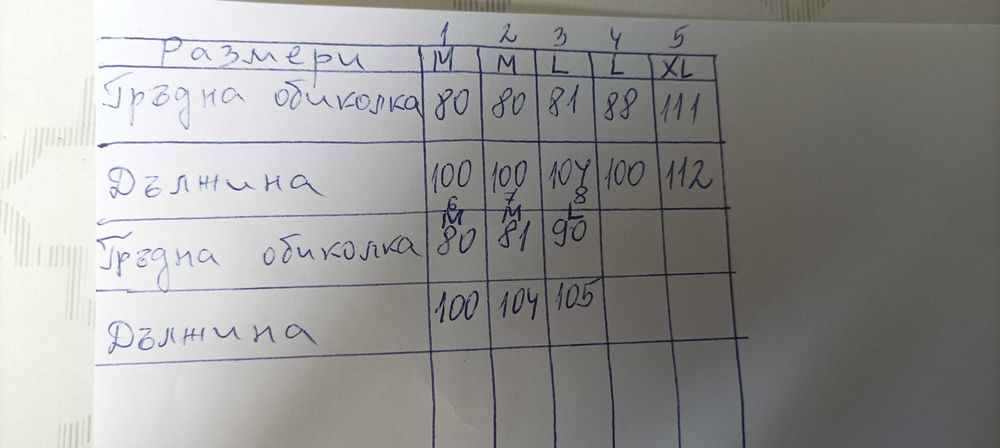 1 2 3 4 5
Размери M M L L XL
Гръдна обиколка 80 80 81 88 111
Дължина 100 100 104 100 112
6 7 8
M M L
Гръдна обиколка 80 81 90
Дължина 100 104 105